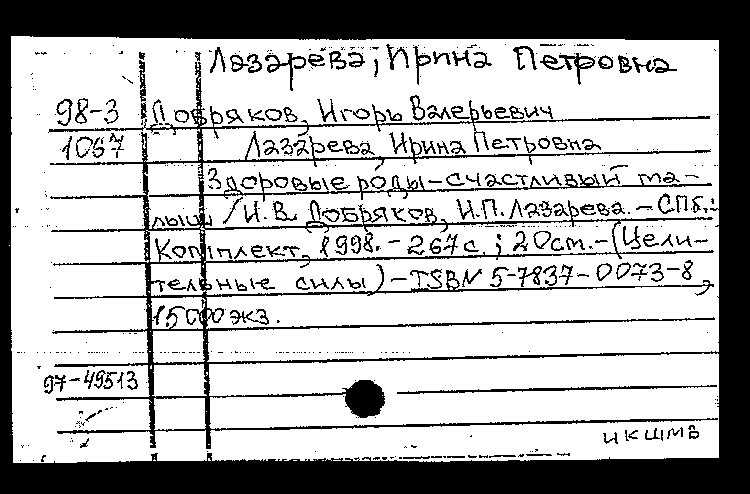 Лазарева, Ирина Петровна
98-3 Добряков, Игорь Валерьевич
1067 Лазарева, Ирина Петровна
Здоровые роды-счастливый ма-
лыш / И.В. Добряков, И.П. Лазарева. - СПб.:
Комплект, 1998. - 267 с.; 20 см. - (Цели-
тельные силы) - ISBN 5-7837-0073-8,
15000 экз.
97-49513
ИКШМВ